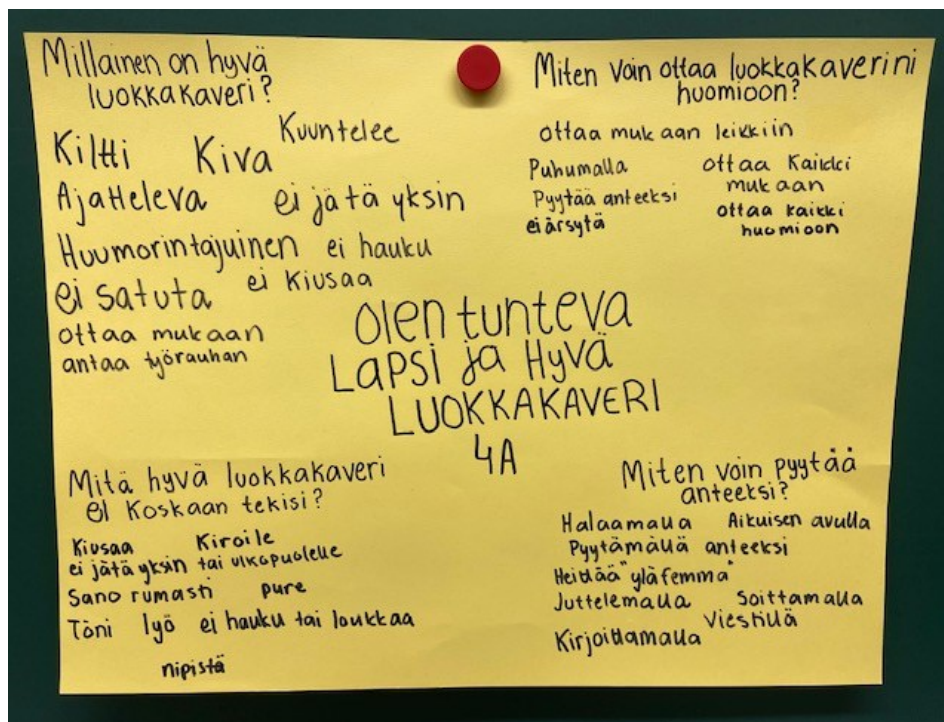 Millainen on hyvä
luokkakaveri?
Kiltti Kiva Kuuntelee
Ajatteleva ei jätä yksin
Huumorintajuinen ei hauku
ei satuta ei kiusaa
ottaa mukaan
antaa työrauhan
Miten voin ottaa luokkakaverini
huomioon?
ottaa mukaan leikkiin
Puhumalla
Pyytää anteeksi
ei ärsytä
ottaa kaikki
mukaan
ottaa kaikki
huomioon
olen tunteva
LAPSI ja HYVÄ
LUOKKAKAVERI
4A
Mitä hyvä luokkakaveri
ei koskaan tekisi?
Kiusaa Kiroile
ei jätä yksin tai ulkopuolelle
Sano rumasti pure
Töni lyö ei hauku tai loukkaa
nipistä
Miten voin pyytää
anteeksi?
Halaamalla Aikuisen avulla
Pyytämällä anteeksi
Heittää "yläfemma"
Juttelemalla Soittamalla
Viestillä
Kirjoittamalla